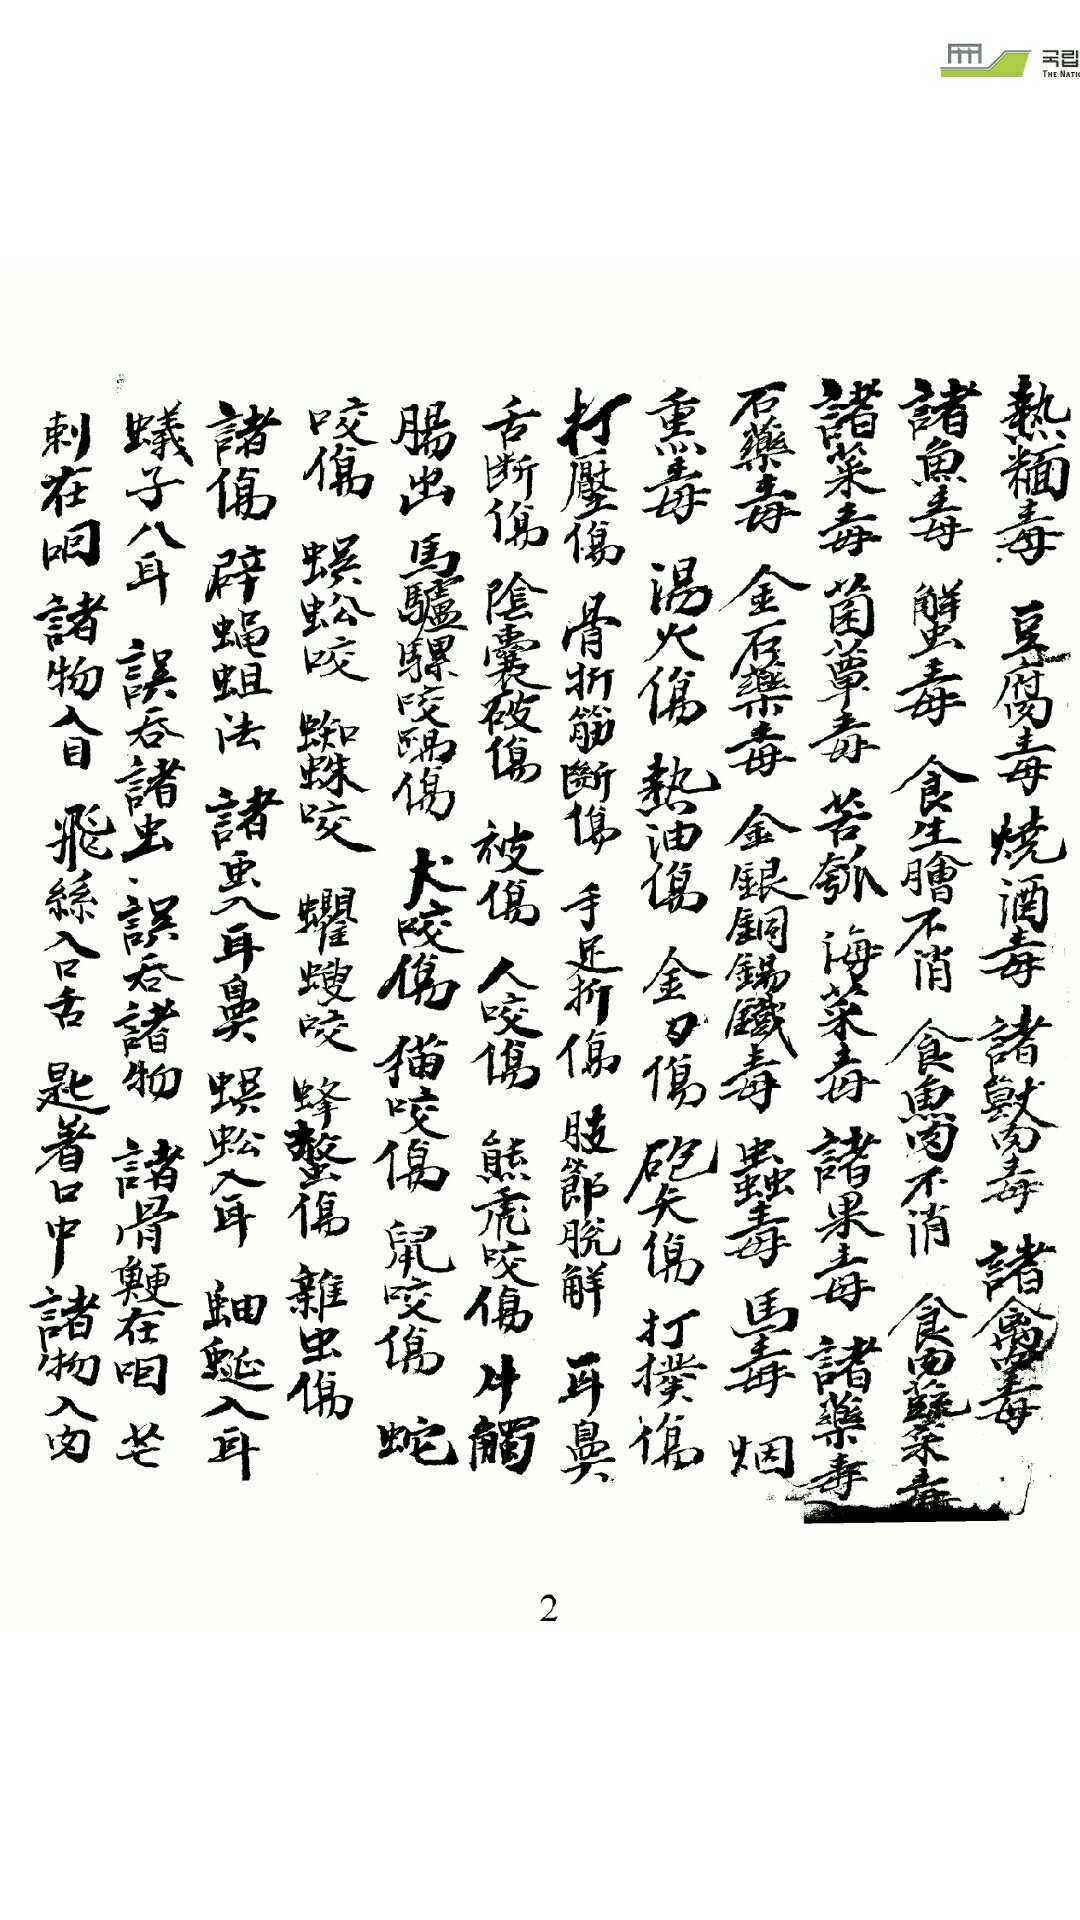 국립
THE NATIO
熱麵毒 豆腐毒 燒酒毒 諸獸肉毒 諸禽肉毒
諸魚毒 蟹毒 食生膾不消 食魚肉不消 食肉
諸菜毒 菌蕈毒 苦瓠 海菜毒 諸果毒 諸藥毒
石藥毒 金石藥毒 金銀銅錫鐵毒 蟲毒 馬毒 烟
熏毒 湯火傷 熱油傷 金刀傷 砲矢傷 打撲傷
打壓傷 骨折筋斷傷 手足折傷 肢節脫解 耳鼻
舌斷傷 陰囊破傷 被傷 人咬傷 熊虎咬傷 牛觸
腸出 馬驢騾咬踢傷 犬咬傷 猫咬傷 鼠咬傷 蛇
咬傷 蜈蚣咬 蜘蛛咬 蠷螋咬 蜂螫傷 雜虫傷
諸傷 辟蝇蛆法 諸虫入耳鼻 蜈蚣入耳 蚰蜒入耳
蟻子入耳 誤吞諸虫 誤吞諸物 諸骨鯁在咽 芒
刺在咽 諸物入目 飛絲入口舌 匙着口中 諸物入肉
2